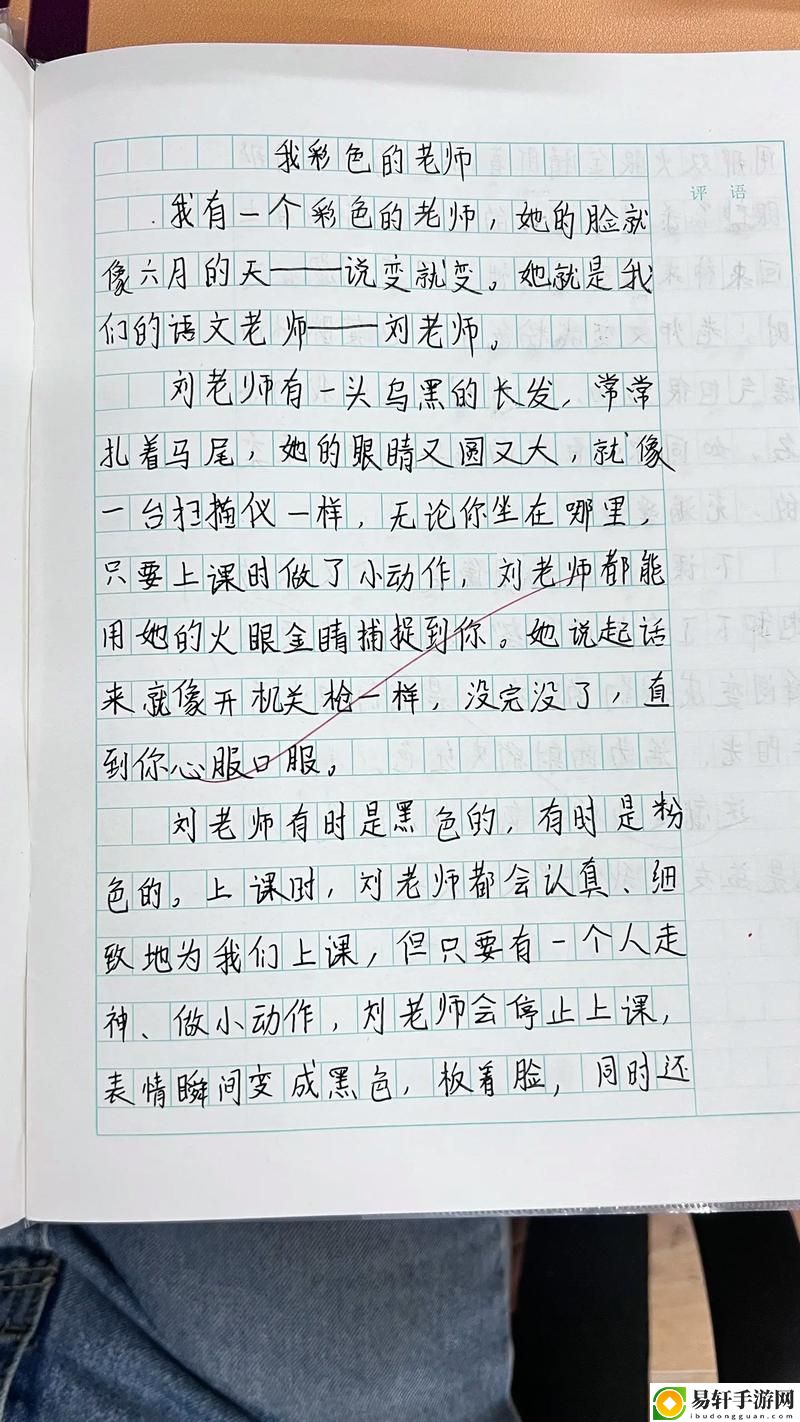 我彩色的老师
评语
我有一个彩色的老师，她的脸就
像六月的天——说变就变。她就是我
们的语文老师——刘老师。
刘老师有一头乌黑的长发，常常
扎着马尾，她的眼睛又圆又大，就像
一台扫描仪一样，无论你坐在哪里，
只要上课时做了小动作，刘老师都能
用她的火眼金睛捕捉到你。她说起话
来就像开机关枪一样，没完没了，直
到你心服口服。
刘老师有时是黑色的，有时是粉
色的。上课时，刘老师都会认真、细
致地为我们上课，但只要有一个人走
神、做小动作，刘老师会停止上课，
表情瞬间变成黑色，板着脸，同时还
易轩手游网
ibudongguan.com